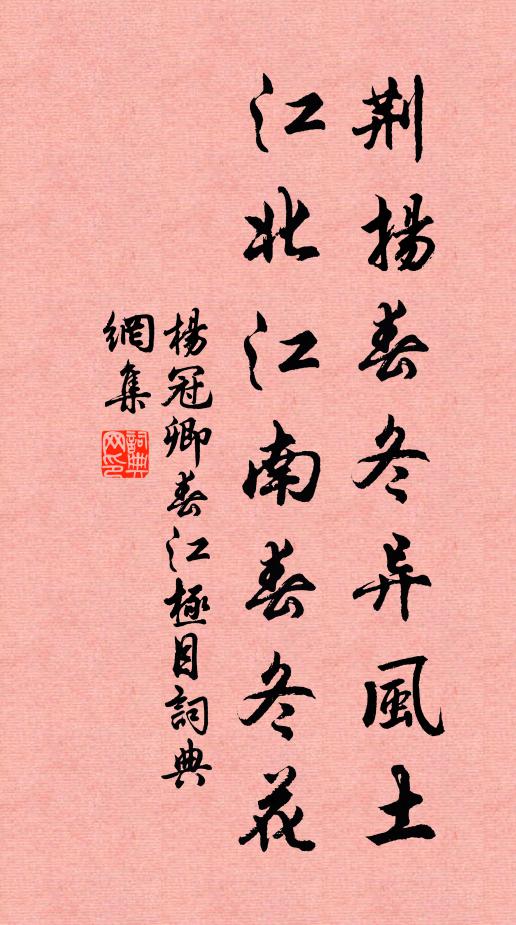 荆揚春冬异風土
江北江南春冬花
楊冠卿春江極目詞典
網集
詞典網印